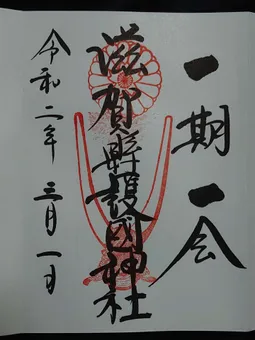 一期一会
滋賀縣護國神社
令和二年 三月一日